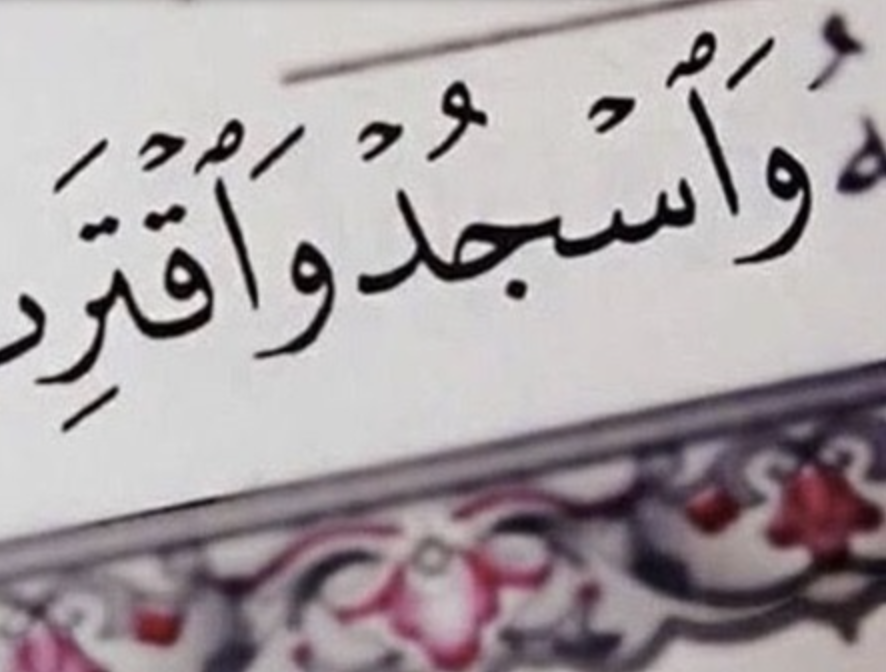 هُ وَٱسْجُدْ وَٱقْتَرِب